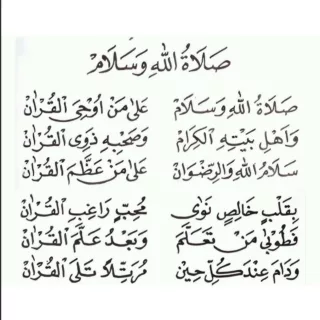 صَلَاةُ اللهِ وَسَلَامْ
صَلَاةُ اللهِ وَسَلَامْ عَلَى مَنْ اُوْحِىَ الْقُرْاٰنْ
وَاَهْلِ بَيْتِهِ الْكِرَامْ وَصَحْبِهِ ذَوِى الْقُرْاٰنْ
سَلَامُ اللهِ وَالرِّضْوَانْ عَلَى مَنْ عَظَّمَ الْقُرْاٰنْ
بِقَلْبٍ خَالِصٍ نَوٰى مُحِبٍّ رَاغِبِ الْقُرْاٰنْ
فَطُوْبٰى مَنْ تَعَلَّمَ وَبَعْدُ عَلَّمَ الْقُرْاٰنْ
وَدَامَ عِنْدَ كُلِّ حِيْنْ مُرَتِّلًا تَلَى الْقُرْاٰنْ